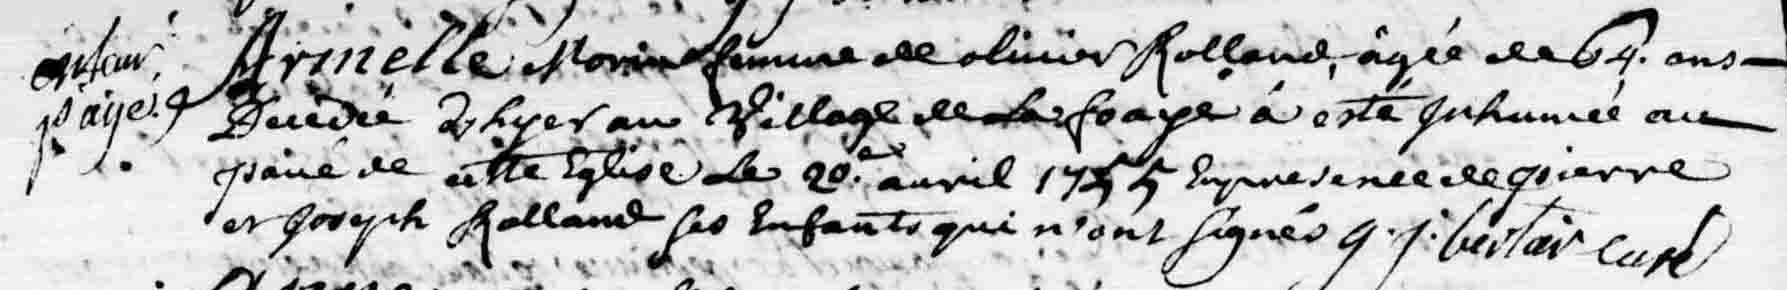 payé
Armelle Morin femme de olivier Rolland, âgée de 64. ans
Decedée d'hyer au Village de La foaye à esté Inhumée au
pavé de cette Eglise Le 20.e avril 1755 En presence de pierre
et Joseph Rolland ses Enfants qui n'ont signés curé